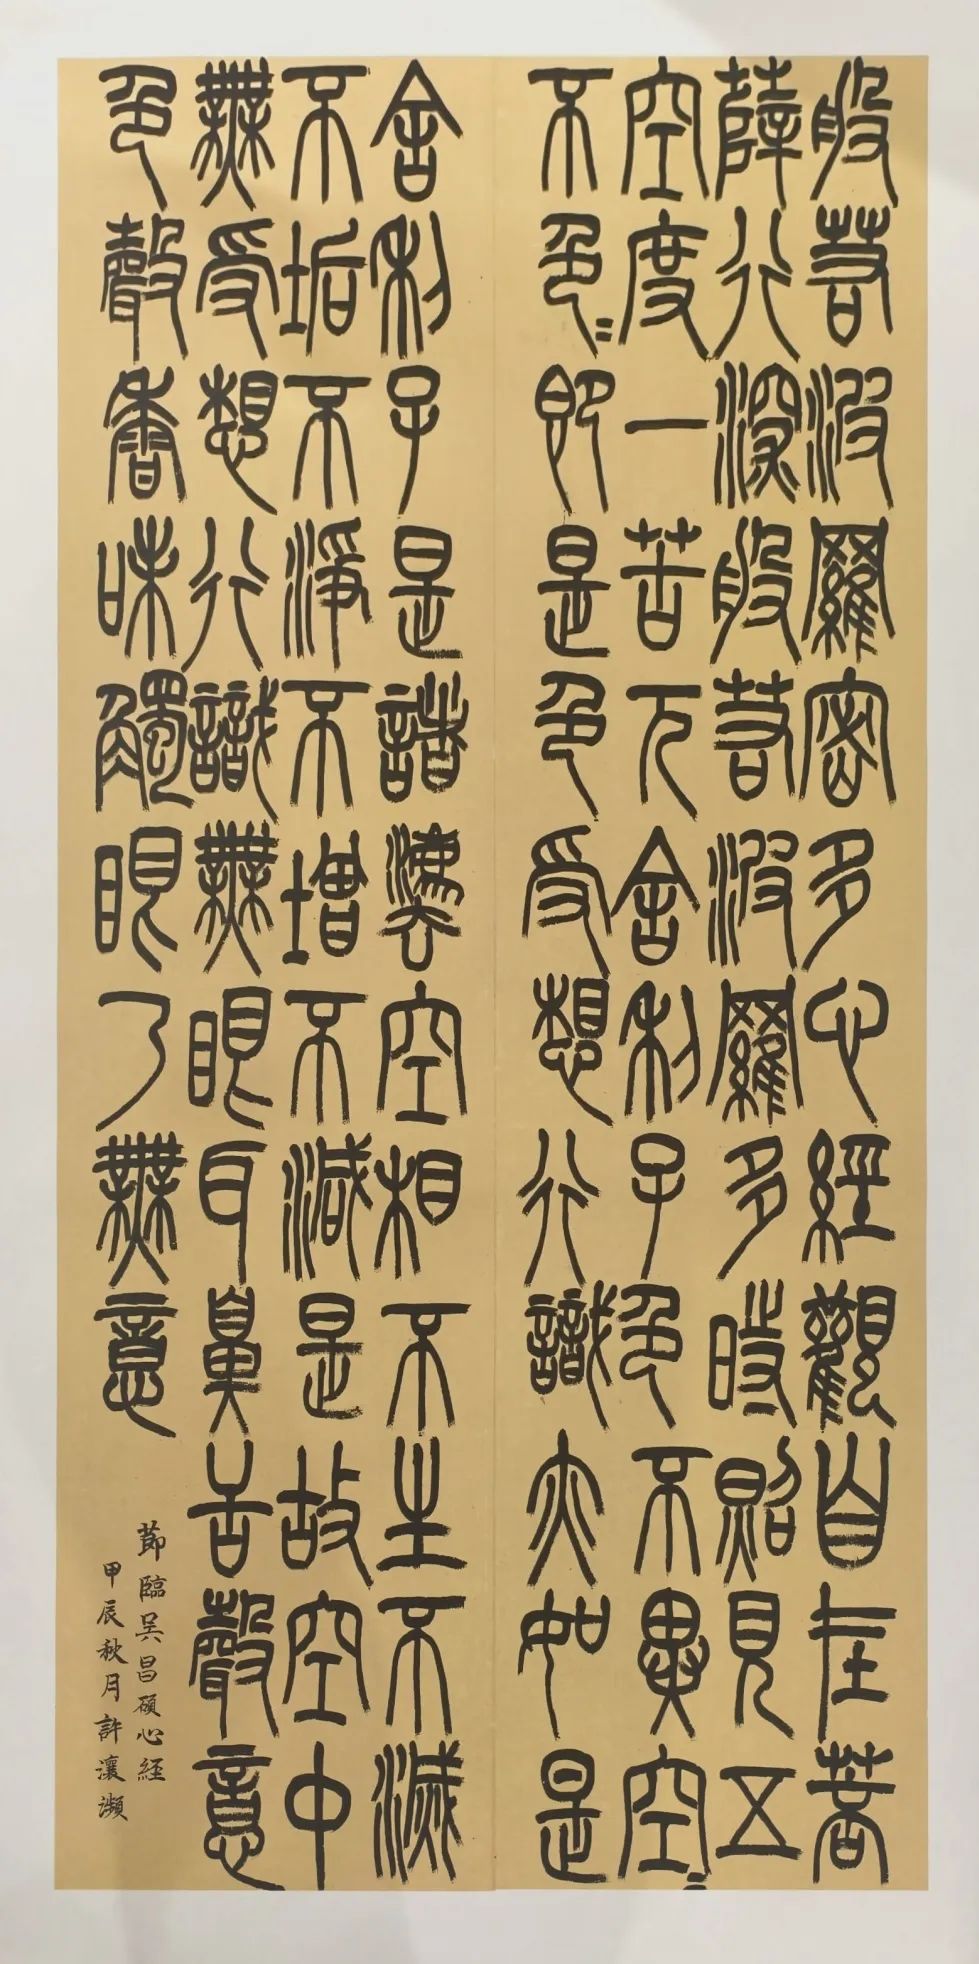 般若波羅密多心經觀自在菩
薩行深般若波羅多時照見五
空度一苦厄舍利子色不異空〻
不色〻即是色受想行識亦如是
舍利子是諸法空相不生不滅
不垢不淨不增不減是故空中
無受想行識無眼耳鼻舌聲意
色聲香味觸眼乃無意
節臨吳昌碩心経
甲辰秋月許瀼